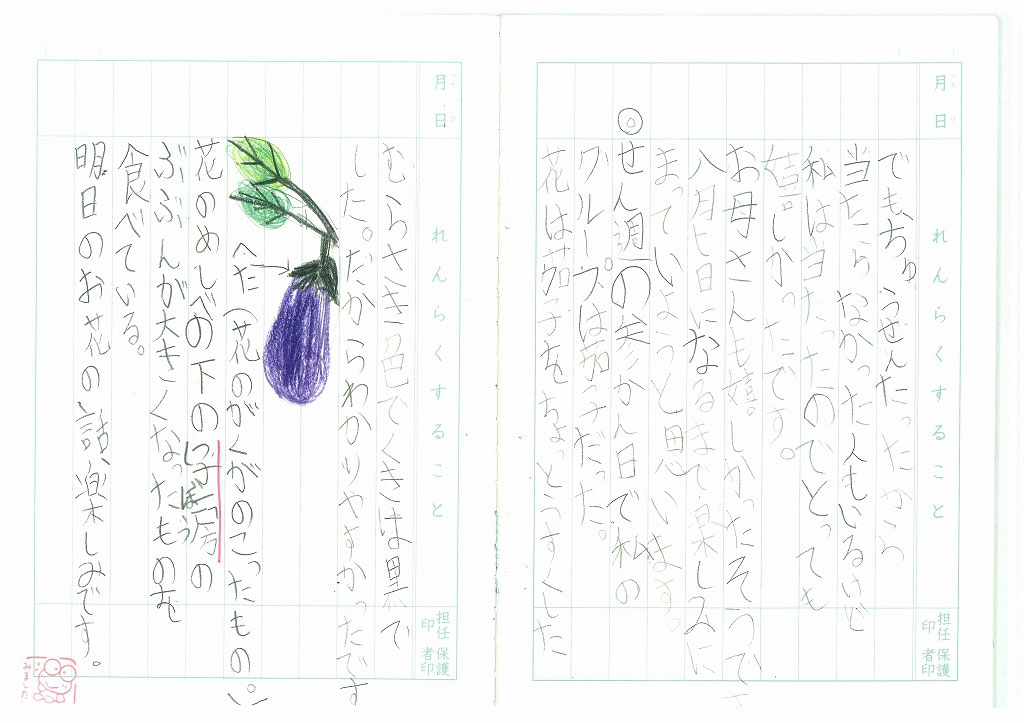 月 日
れんらくすること
担任印
保護者印
でも、ちゅうせんだったから
当たらなかった人もいるけど
私は当たったのでとっても
嬉しかったです。
お母さんも嬉しかったそうです
八月七日になるまで楽しみに
まっていようと思います。
◎せん調の参かん日で私の
グループは茄子だった。
花は茄子をちょっとうすくした
月 日
れんらくすること
担任印
保護者印
むらさき色でくきは黒で
した。だからわかりやすかったです
へた(花のがくがのこったもの。)
花のめしべの下の子房の
しぼう
ぶぶんが大きくなったものを
食べている。
明日のお花の話、楽しみです。
みました